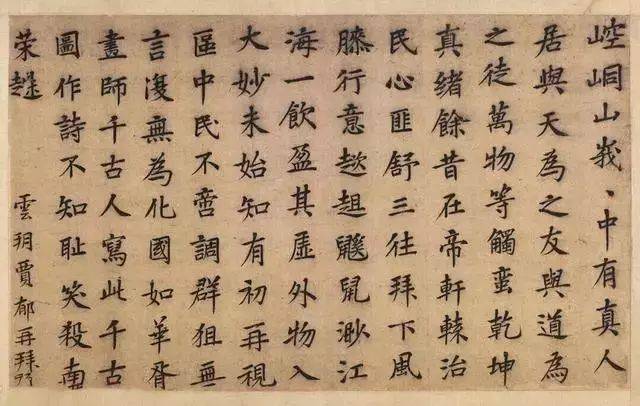 崆峒山峩、中有真人
居與天為之友與道為
之徒萬物等觸蛮乾坤
真緒餘昔在帝軒轅治
民心匪舒三往拜下風
膝行意趑趄鼴鼠渺江
海一飲盈其虛外物入
大妙未始知有初再視
區中民不啻調群狙無
言復無為化國如華胥
畫師千古人寫此千古
圖作詩不知耻笑殺南
荣趎
雲玥賈郁再拜